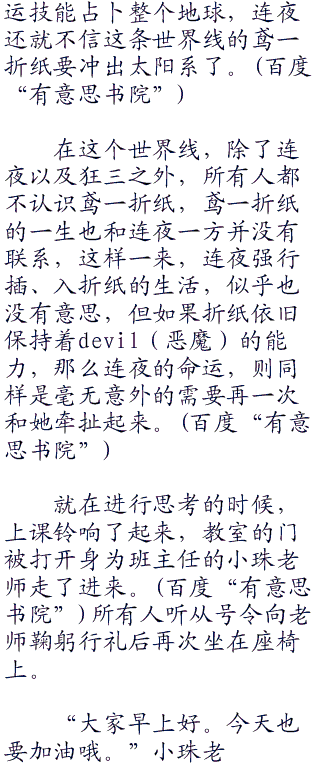 运技能占卜整个地球，连夜
还就不信这条世界线的鸢一
折纸要冲出太阳系了。(百度
“有意思书院”)
在这个世界线，除了连
夜以及狂三之外，所有人都
不认识鸢一折纸，鸢一折纸
的一生也和连夜一方并没有
联系，这样一来，连夜强行
插、入折纸的生活，似乎也
没有意思，但如果折纸依旧
保持着devil（恶魔）的能
力，那么连夜的命运，则同
样是毫无意外的需要再一次
和她牵扯起来。(百度“有意
思书院”)
就在进行思考的时候，
上课铃响了起来，教室的门
被打开身为班主任的小珠老
师走了进来。(百度“有意思
书院”)所有人听从号令向老
师鞠躬行礼后再次坐在座椅
上。
“大家早上好。今天也
要加油哦。”小珠老